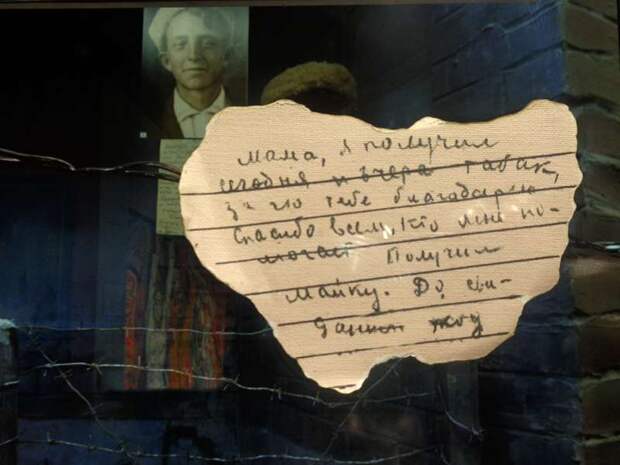 мама, я получил
сегодня и вчера табак,
за что тебе благодарен
Спасибо всем, кто мне по-
могает Получил
майку. До сви-
дания жду